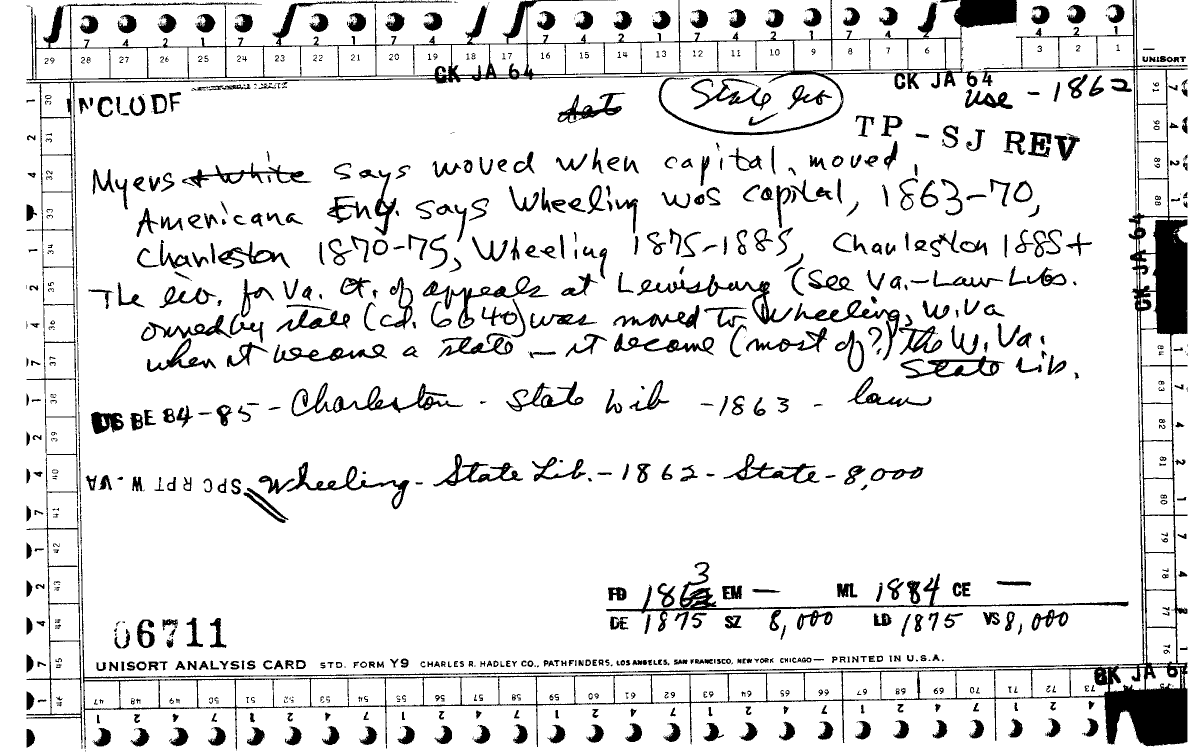 7 4 2 1 7 4 2 1 7 4 2 1 7 4 2 1 7 4 2 1 7 4 2 1
29 28 27 26 25 24 23 22 21 20 19 18 17 16 15 14 13 12 11 10 9 8 7 6 3 2 1
UNISORT
CK JA 64
CK JA 64
INCLUDE
State lib
use - 1862
TP - SJ REV
Myers + White says moved when capital moved,
Americana Ency. says Wheeling was capital, 1863-70,
Charleston 1870-75, Wheeling 1875-1885, Charleston 1885+
The lib. for Va. Ct. of appeals at Lewisburg (See Va.-Law Libs.
owned by state (cd. 6640) was moved to Wheeling, W.Va
when it became a state - it became (most of?) the W. Va.
State Lib.
US BE 84-85 - Charleston - State Lib - 1863 - law
SPC RPT W. VA Wheeling - State Lib. - 1862 - State - 8,000
CK JA 64
FD 1863 EM — ML 1884 CE —
DE 1875 SZ 8,000 LD 1875 VS 8,000
06711
UNISORT ANALYSIS CARD STD. FORM Y9 CHARLES R. HADLEY CO., PATHFINDERS, LOS ANGELES, SAN FRANCISCO, NEW YORK CHICAGO — PRINTED IN U.S.A.
CK JA 64
47 48 49 50 51 52 53 54 55 56 57 58 59 60 61 62 63 64 65 66 67 68 69 70 71 72 73